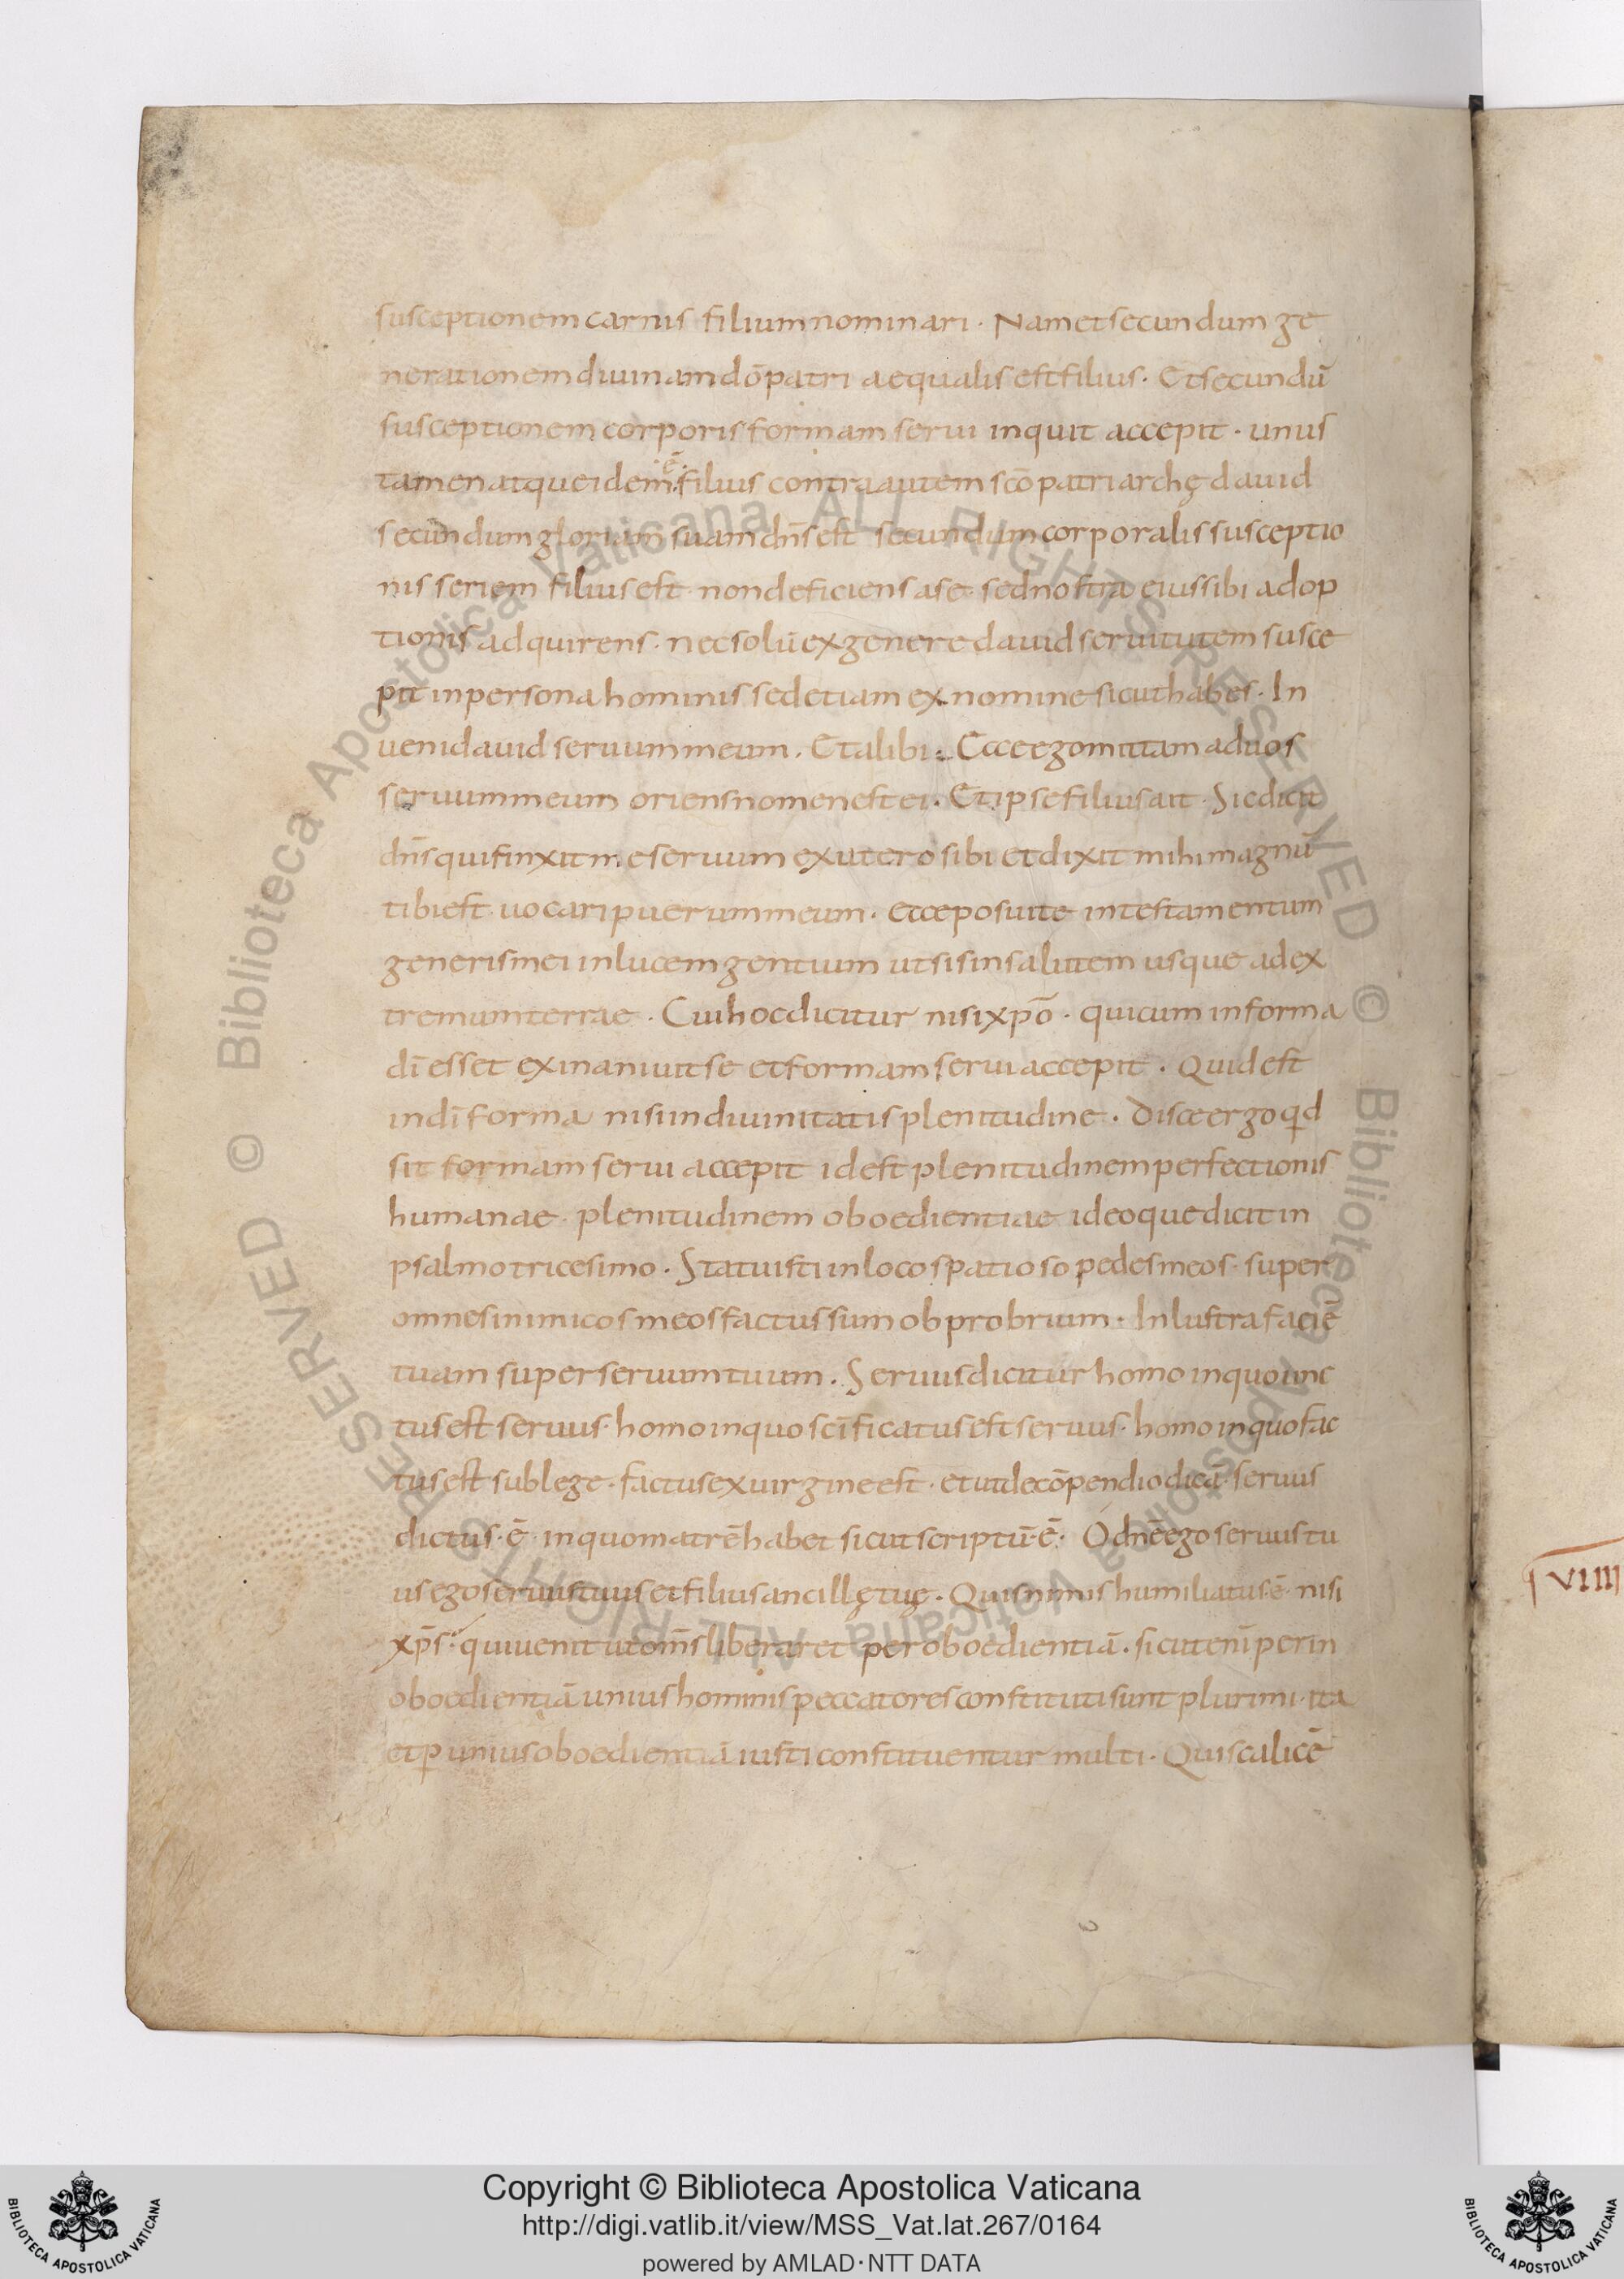 susceptionem carnis filium nominari · Nam et secundum ge
nerationem diuinam dō patri aequalis est filius · Et secundū
susceptionem corporis formam serui inquit accepit · unus
tamen atque idem ·ē· filius contra autem scō patriarchę dauid
secundum gloriam suam dn̄s est secundum corporalis susceptio
nis seriem filius est · non deficiens a se · sed nostra eius sibi adop
tionis adquirens · nec solū ex genere dauid seruitutem susce
pit in persona hominis sed etiam ex nomine sicut habes · In
ueni dauid seruum meum · Et alibi · Ecce ego mittam ad uos
seruum meum oriens nomen est ei · Et ipse filius ait · Sic dicit
dn̄s qui finxit me seruum ex utero sibi et dixit mihi magnū
tibi est uocari puerum meum · ecce posui te in testamentum
generis mei in lucem gentium ut sis in salutem usque ad ex
tremum terrae · Cui hoc dicitur nisi xp̄o · qui cum in forma
dī esset exinaniuit se et formam serui accepit · Quid est
in dī forma nisi in diuinitatis plenitudine · Disce ergo qđ
sit formam serui accepit id est plenitudinem perfectionis
humanae · plenitudinem oboedientiae ideoque dicit in
psalmo tricesimo · Statuisti in loco spatioso pedes meos · super
omnes inimicos meos factus sum obprobrium · Inlustra faciē
tuam super seruum tuum · Seruus dicitur homo in quo unc
tus est seruus · homo in quo scīficatus est seruus · homo in quo fac
tus est sub lege · factus ex uirgine est · et ut de cōpendio dicā · seruus
dictus · ē · in quo matrē habet sicut scriptū · ē · O dnē ego seruus tu
us ego seruus tuus et filius ancillę tuę · Quis nimis humiliatus · ē · nisi
xp̄s · qui uenit ut om̄s liberaret per oboedientiā · sicut enī per in
oboedientiā unius hominis peccatores constituti sunt plurimi · ita
et p̱ unius oboedientiā iusti constituentur multi · Quis calicē
VIIII
Copyright © Biblioteca Apostolica Vaticana
http://digi.vatlib.it/view/MSS_Vat.lat.267/0164
powered by AMLAD · NTT DATA
BIBLIOTECA APOSTOLICA VATICANA
BIBLIOTECA APOSTOLICA VATICANA
© Biblioteca Apostolica Vaticana ALL RIGHTS RESERVED © Biblioteca Apostolica Vaticana ALL RIGHTS RESERVED